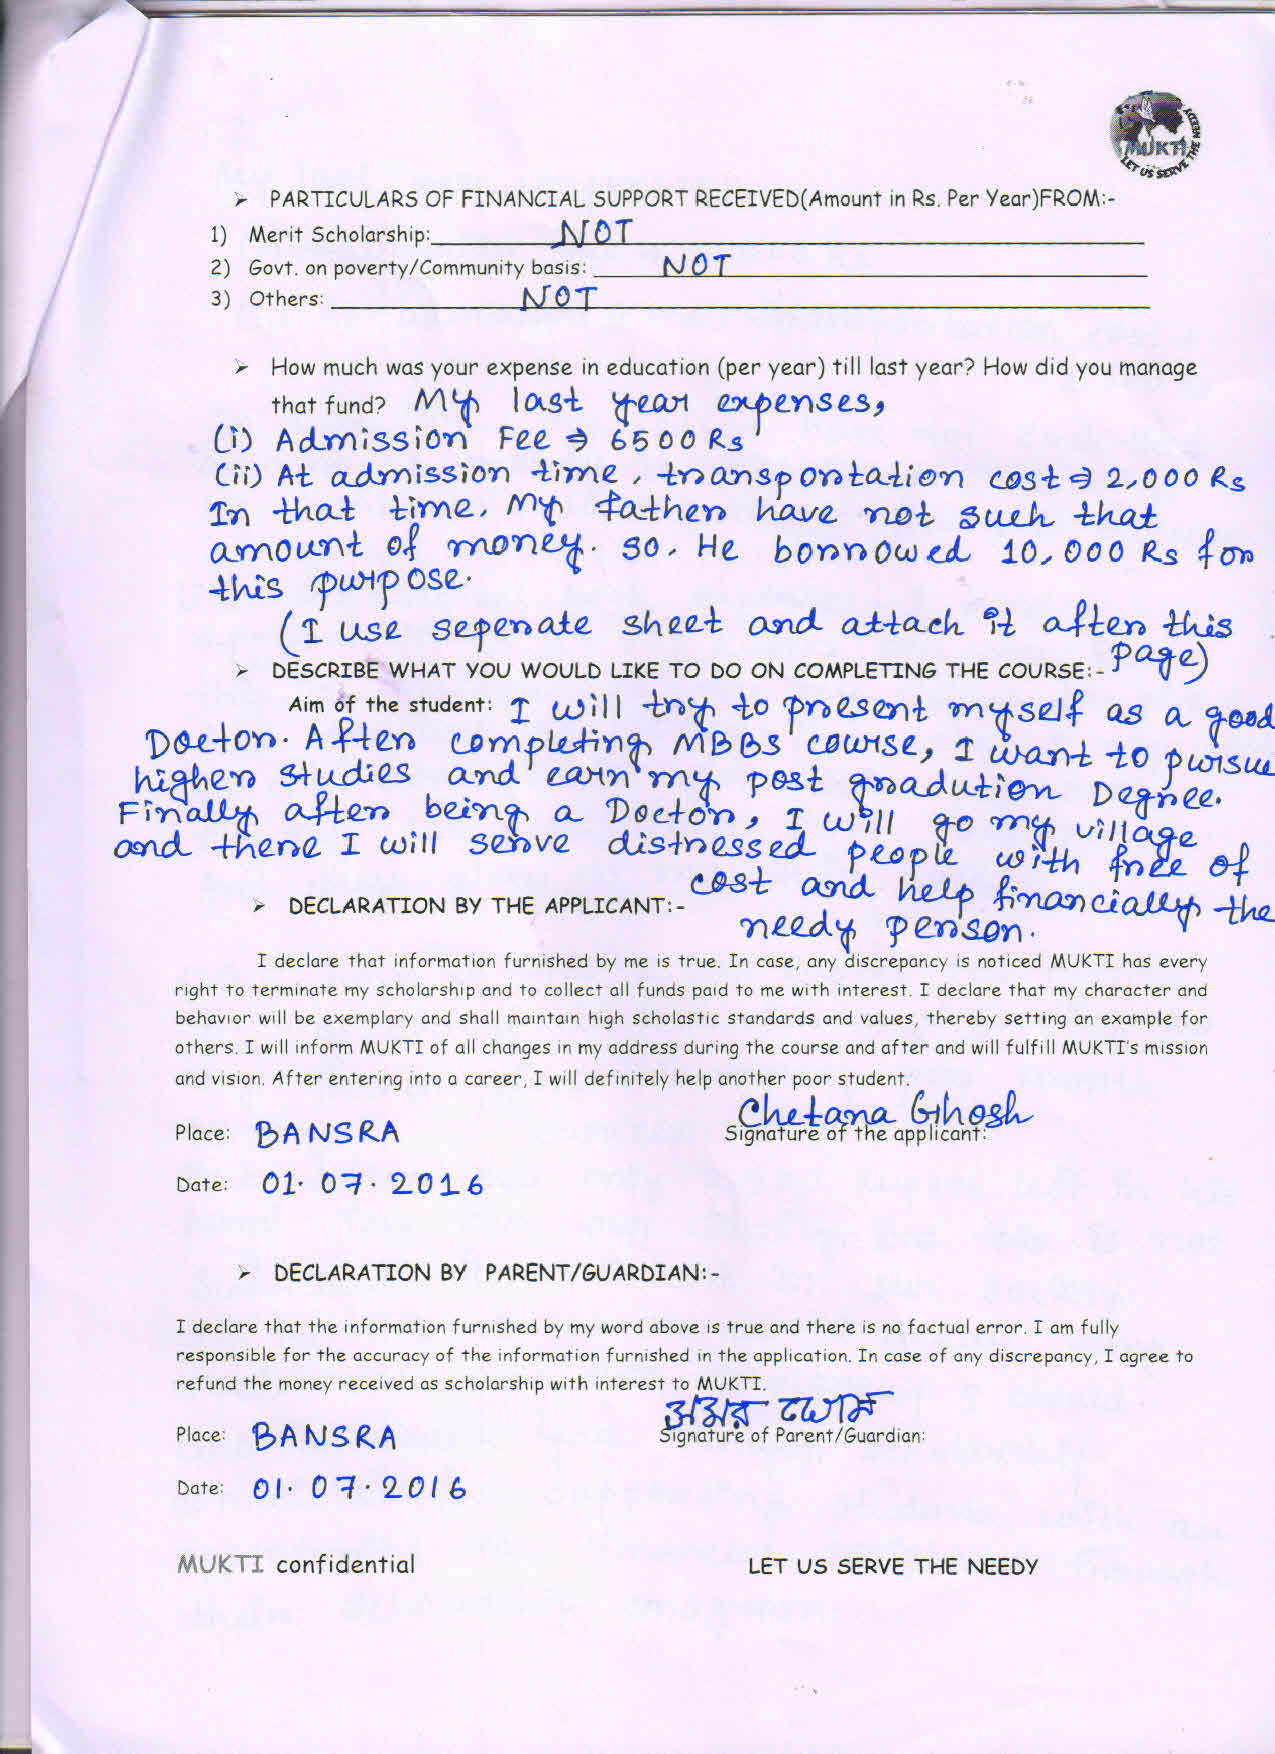 MUKTI
LET US SERVE THE NEEDY
➢ PARTICULARS OF FINANCIAL SUPPORT RECEIVED(Amount in Rs. Per Year)FROM:-
1) Merit Scholarship: NOT
2) Govt. on poverty/Community basis: NOT
3) Others: NOT
➢ How much was your expense in education (per year) till last year? How did you manage
that fund? My last year expenses,
(i) Admission Fee ⇒ 6500 Rs
(ii) At admission time, transportation cost ⇒ 2,000 Rs
In that time, my father have not such that
amount of money. so, He borrowed 10,000 Rs for
this purpose.
(I use seperate sheet and attach it after this
page)
➢ DESCRIBE WHAT YOU WOULD LIKE TO DO ON COMPLETING THE COURSE:-
Aim of the student: I will try to present myself as a good
Doctor. After completing MBBS course, I want to pursue
higher studies and earn my post gradution Degree.
Finally after being a Doctor, I will go my village
and there I will serve distressed people with free of
cost and help financially the
needy person.
➢ DECLARATION BY THE APPLICANT:-
I declare that information furnished by me is true. In case, any discrepancy is noticed MUKTI has every
right to terminate my scholarship and to collect all funds paid to me with interest. I declare that my character and
behavior will be exemplary and shall maintain high scholastic standards and values, thereby setting an example for
others. I will inform MUKTI of all changes in my address during the course and after and will fulfill MUKTI's mission
and vision. After entering into a career, I will definitely help another poor student.
Chetana Ghosh
Place: BANSRA Signature of the applicant:
Date: 01.07.2016
➢ DECLARATION BY PARENT/GUARDIAN:-
I declare that the information furnished by my word above is true and there is no factual error. I am fully
responsible for the accuracy of the information furnished in the application. In case of any discrepancy, I agree to
refund the money received as scholarship with interest to MUKTI.
অমর ঘোষ
Place: BANSRA Signature of Parent/Guardian:
Date: 01.07.2016
MUKTI confidential LET US SERVE THE NEEDY